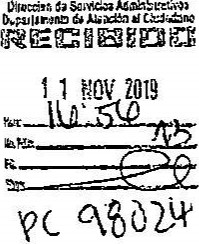 Dirección de Servicios Administrativos
Departamento de Atención al Ciudadano
RECIBIDO
11 NOV 2019
16:56
PC 98024